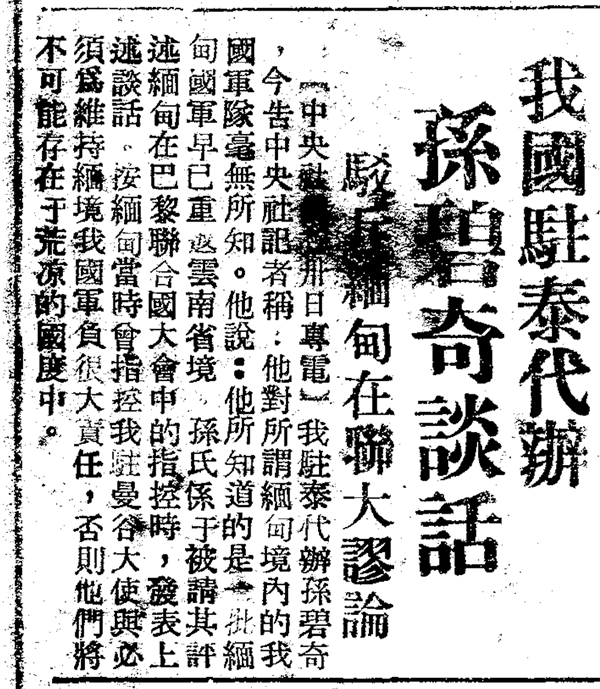 我國駐泰代辦
孫碧奇談話
駁斥緬甸在聯大謬論
【中央社 卅日專電】我駐泰代辦孫碧奇
，今告中央社記者稱：他對所謂緬甸境內的我
國軍隊毫無所知。他說：他所知道的是一批緬
甸國軍早已重返雲南省境 孫氏係于被請其評
述緬甸在巴黎聯合國大會中的指控時，發表上
述談話。按緬甸當時曾指控我駐曼谷大使與必
須為維持緬境我國軍負很大責任，否則他們將
不可能存在于荒凉的國度中。